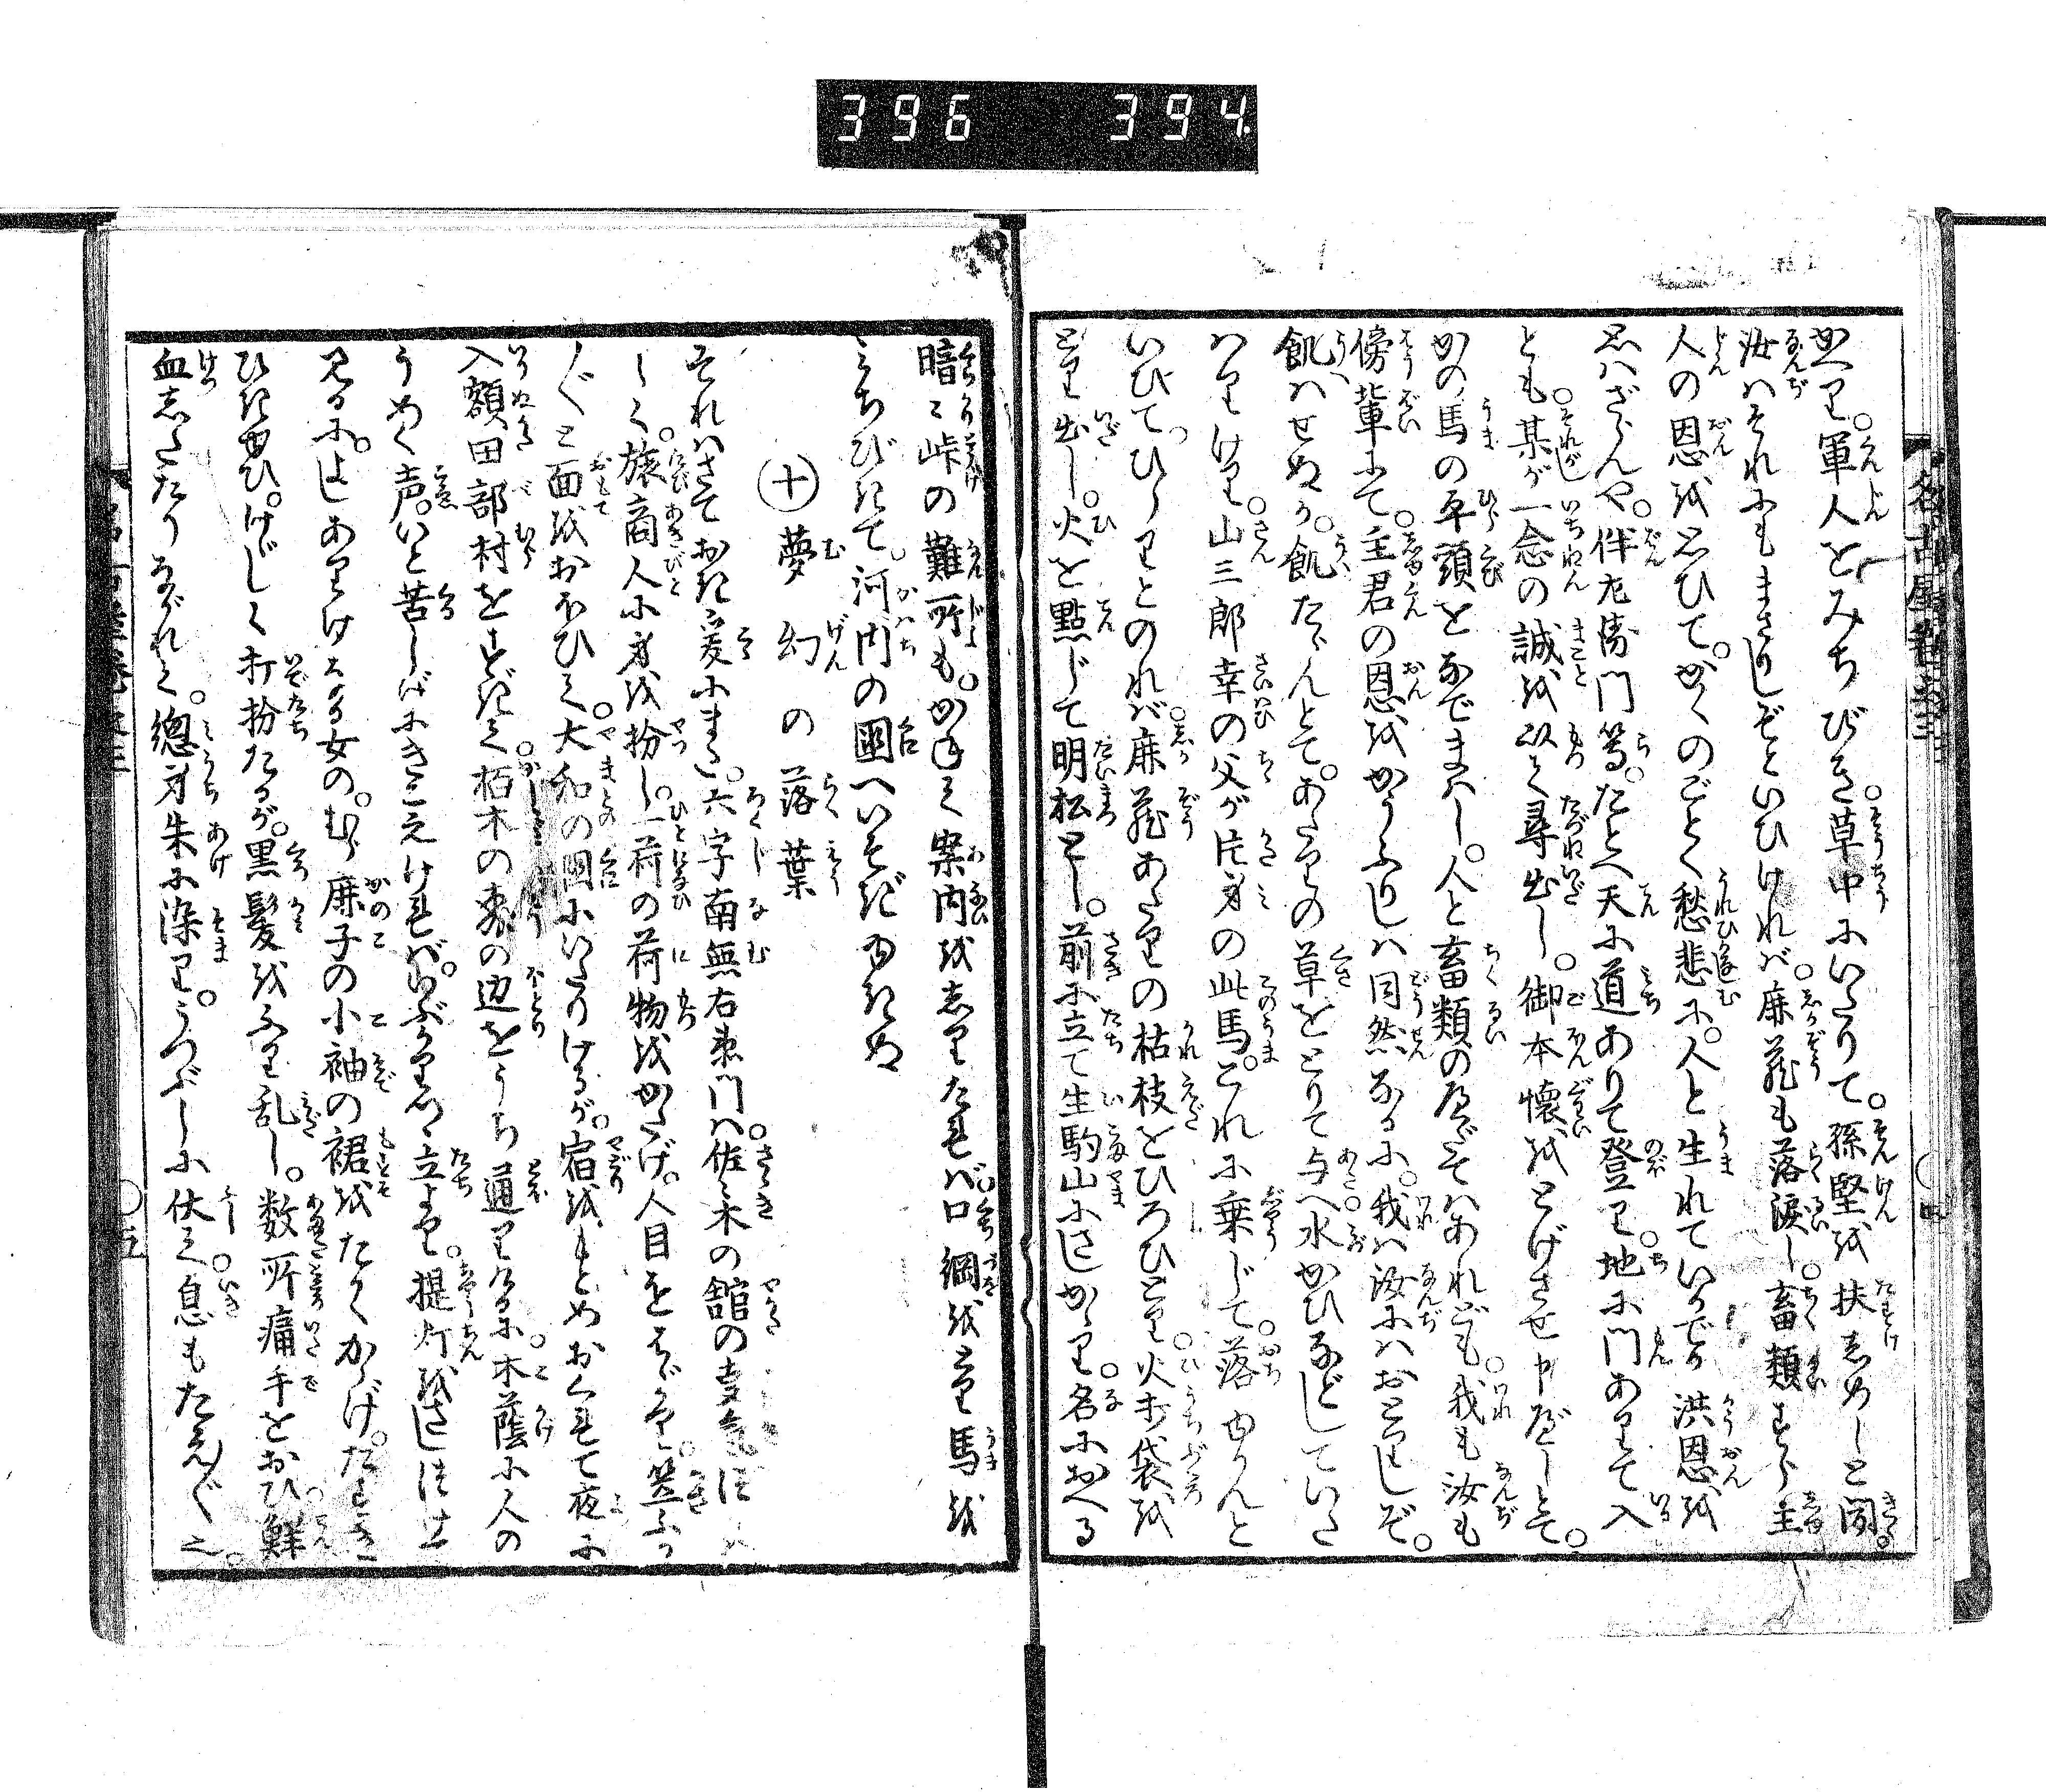 396 394
かへり。軍人をみちびき。草中にいたりて。孫堅を扶しめしと聞。
汝はそれにもまさりしぞといひければ。鹿蔵も落涙し。畜類すら主
人の恩を思ひて。かくのごとく愁悲に。人と生れていかでか洪恩を
思はざらんや。伴左衛門等。たとへ天に道ありて登り。地に門ありて入
とも。某が一念の誠を以て尋出し。御本懐をとげさせ申べしとて。
かの馬の平頭をなでまはし。人と畜類のへだてはあれども。我も汝も
傍輩にて。主君の恩をかうふりしは同然なるに。我は汝にはおとりしぞ。
飢はせぬか。飢たらんとて。あたりの草をとりて与へ水かひなどしていた
はりけり。山三郎幸の父が片身の此馬。これに乗じて。落ゆかんと
いひてひらりとのれば。鹿蔵あたりの枯枝をひろひとり。火打袋を
とり出し。火を點じて明松とし。前に立て生駒山にさしかゝり。名におへる
暗峠の難所も。かねて案内をしりたれば。口綱をとり馬を
みちびきて。河内の国へいそぎゆきぬ
十 夢幻の落葉
それはさておき爰にまた。六字南無右衛門は。佐々木の舘の
しく。旅商人に身を扮し。一荷の荷物をかたげ。人目をはゞかり。笠ふか
〴〵と面をおほひて。大和の国にいたりけるが。宿をもとめおくれて夜に
入額田部村をすぎて。柏木の森の辺をうち通りけるに。木蔭に人の
うめく声。いと苦しげにきこえければ。いぶかり立より。提灯をさしつけ
見るに。よしありげなる女の。むら鹿子の小袖の裾をたかくかゝげ。たすき
ひきゆひ。けじしく打扮たるが。黒髪をふり乱し。数所痛手をおひ鮮
血したゝりながれて。總身朱に染り。うつぶしに伏て息もたえ〴〵也。